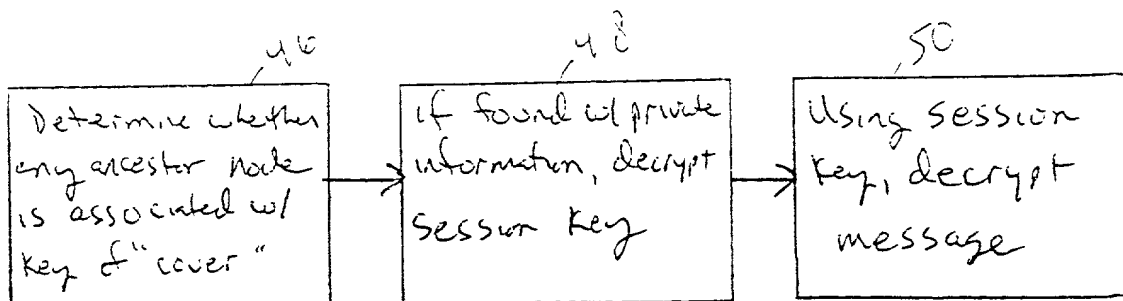 46
48
50
Determine whether
any ancestor node
is associated w/
key of "cover"
if found w/ private
information, decrypt
session key
Using session
key, decrypt
message